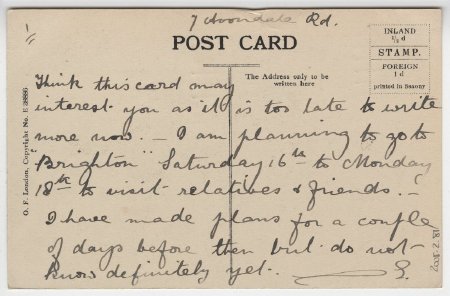 7 Avondale Rd.
1/-
POST CARD
INLAND
½ d
STAMP.
FOREIGN
1 d
printed in Saxony
The Address only to be
written here
O. F. London, Copyright No. E 38886
Think this card may
interest you as it is too late to write
more now. — I am planning to go to
"Brighton" Saturday 16th to Monday
18th to visit relatives & friends. —
I have made plans for a couple
of days before then but do not
know definitely yet.
S.